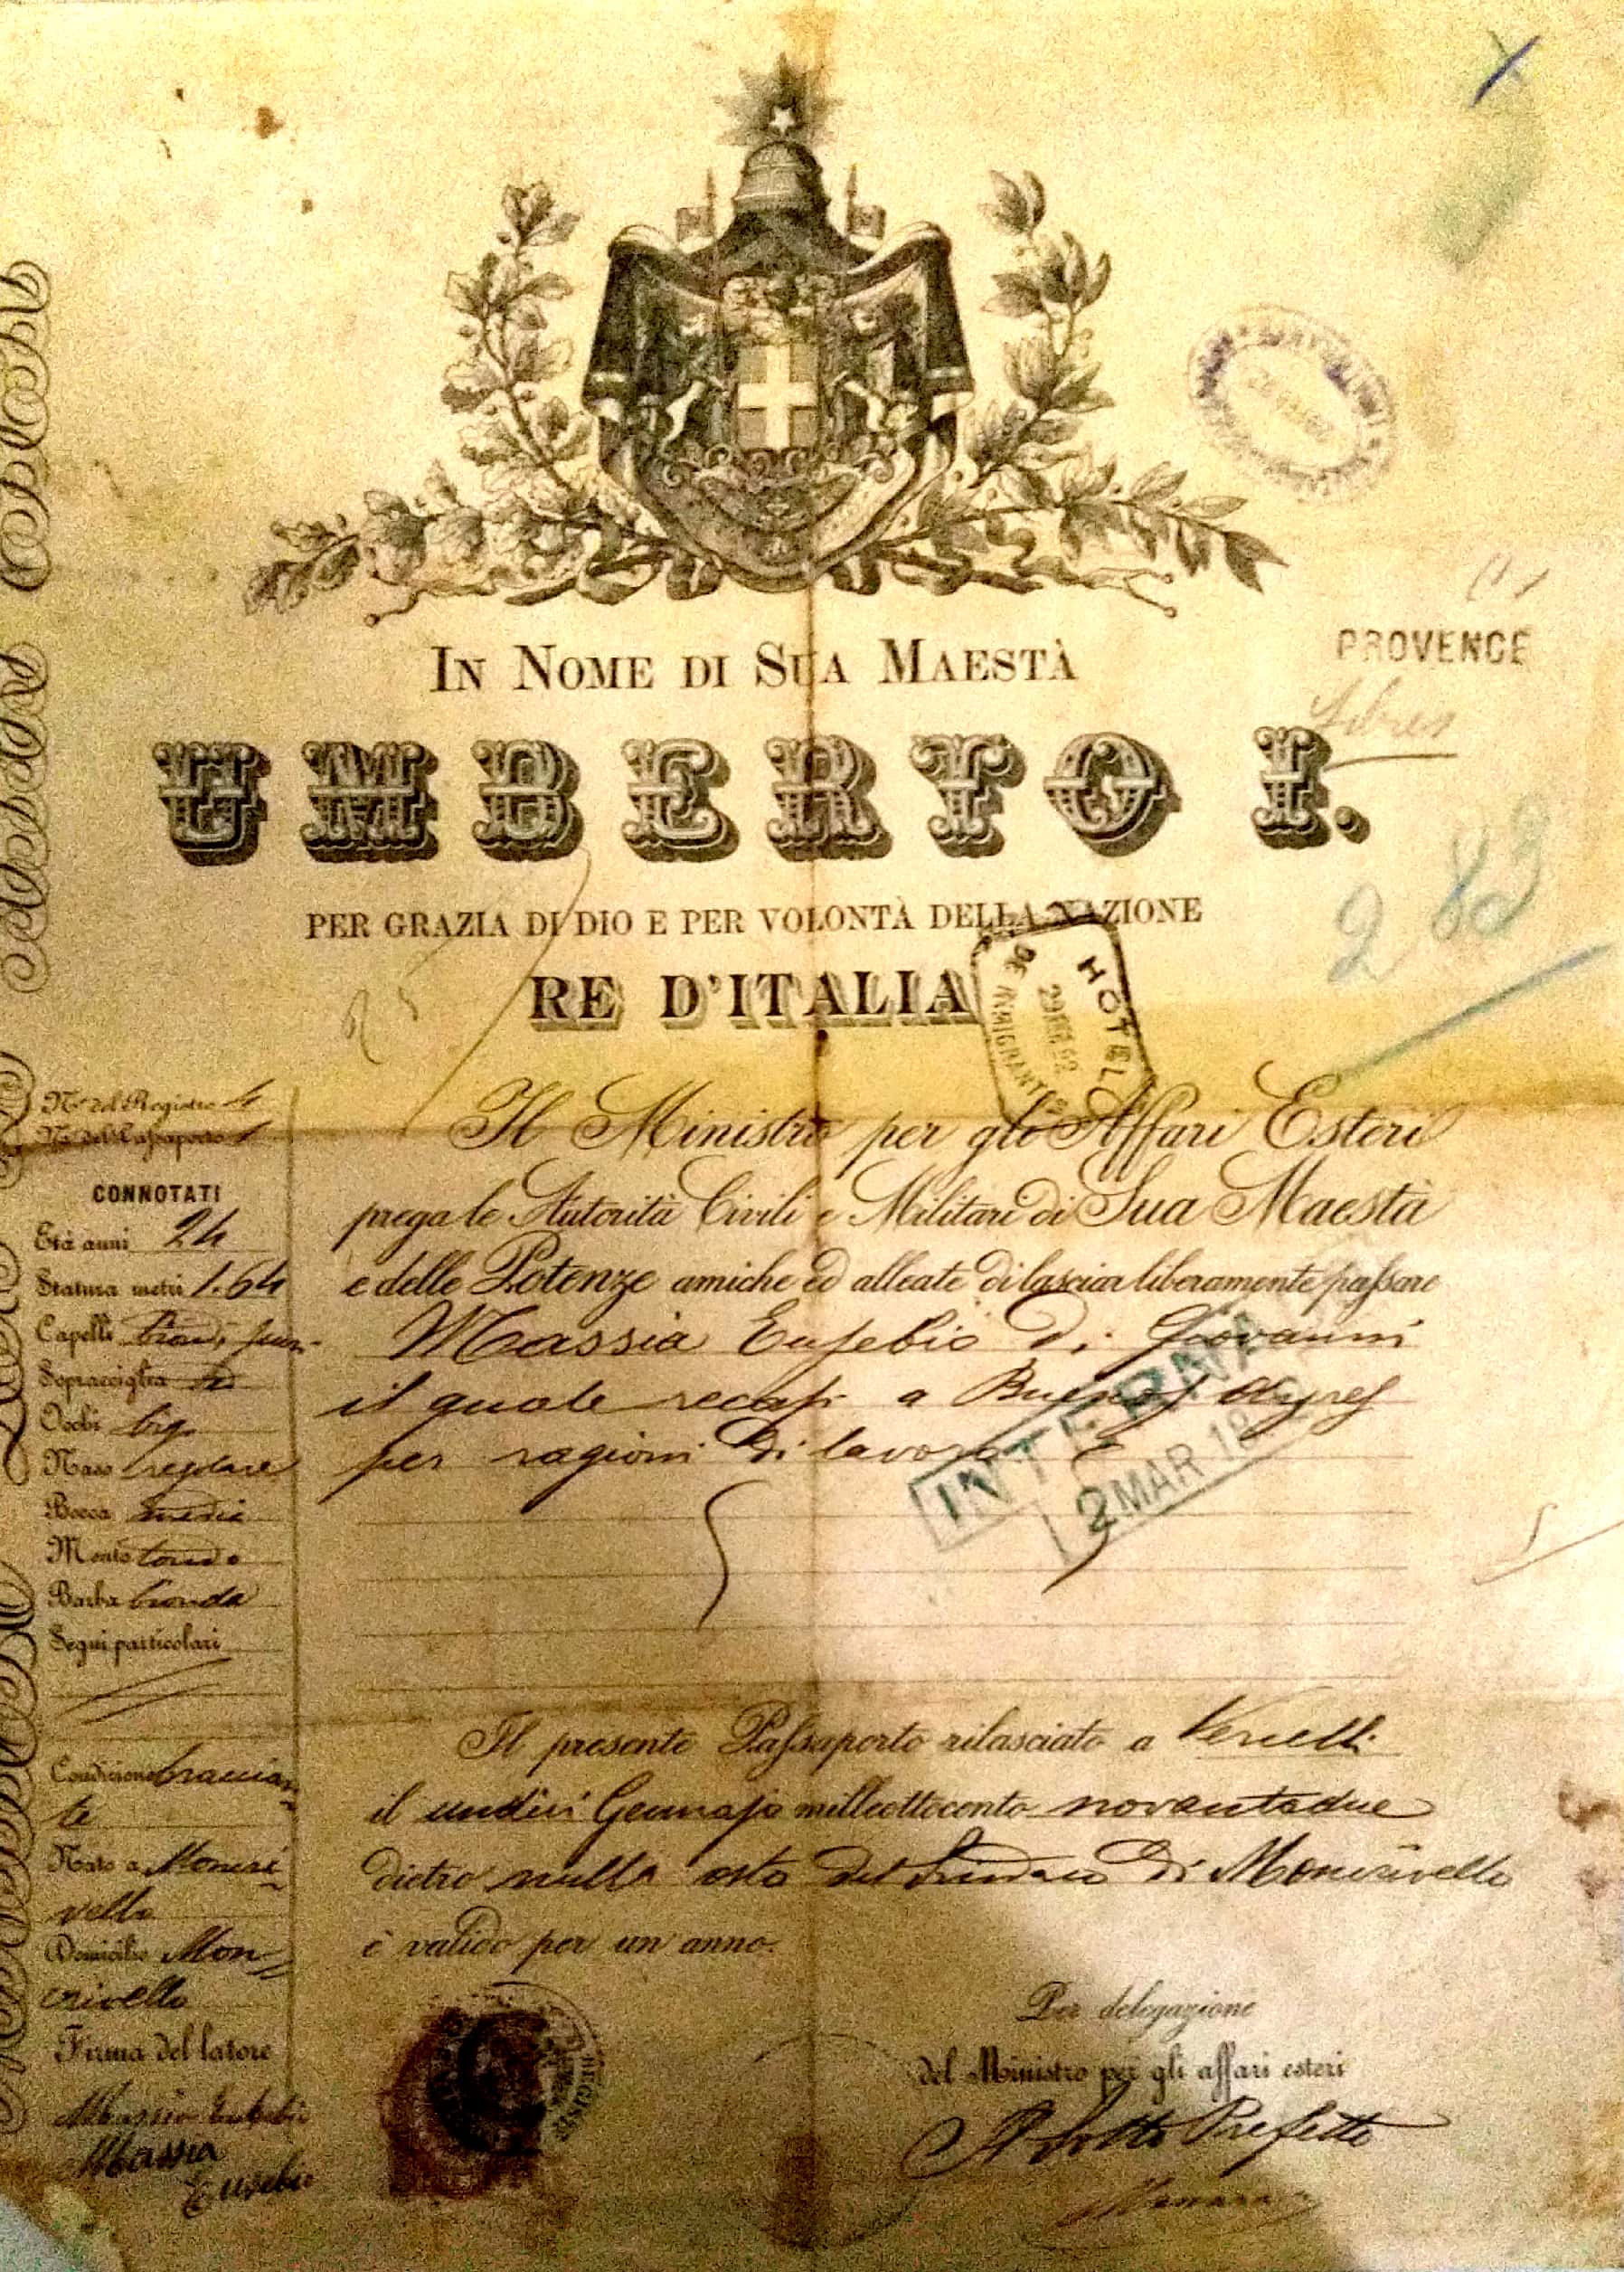 IN NOME DI SUA MAESTÀ
PROVENCE
UMBERTO I.
283
PER GRAZIA DI DIO E PER VOLONTÀ DELLA NAZIONE
RE D'ITALIA
HOTEL
DE INMIGRANTES
Nº del Registro 4
Nº del Passaporto
CONNOTATI
Età anni 24
Statura metri 1.64
Capelli
Sopracciglia
Occhi big.
Naso regolare
Bocca media
Mento tondo
Barba bionda
Segni particolari
Condizione braccian-
te
Nato a Moncri-
vello
Domicilio Mon-
crivello
Firma del latore
Massia Eusebio
Massia
Eusebio
Il Ministro per gli Affari Esteri
prega le Autorità Civili e Militari di Sua Maestà
e delle Potenze amiche ed alleate di lasciar liberamente passare
Massia Eusebio di Giovanni
il quale recasi a Buenos Ayres
per ragioni di lavoro
INTERNA
2 MAR 18
Il presente Passaporto rilasciato a Vercelli
il undici Gennajo milleottocento novantadue
dietro nulla osta del Sindaco di Moncrivello
è valido per un anno.
Per delegazione
del Ministro per gli affari esteri
Il Sotto Prefetto